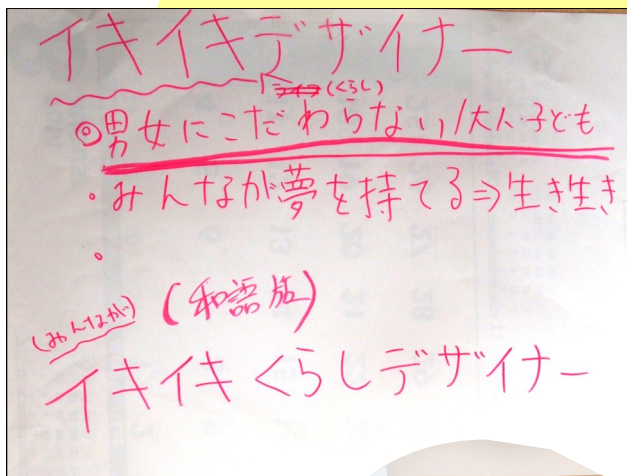 イキイキデザイナー
(くらし)
◎男女にこだわらない/大人・子ども
・みんなが夢を持てる⇒生き生き
・
(みんなが) (和語版)
イキイキくらしデザイナー